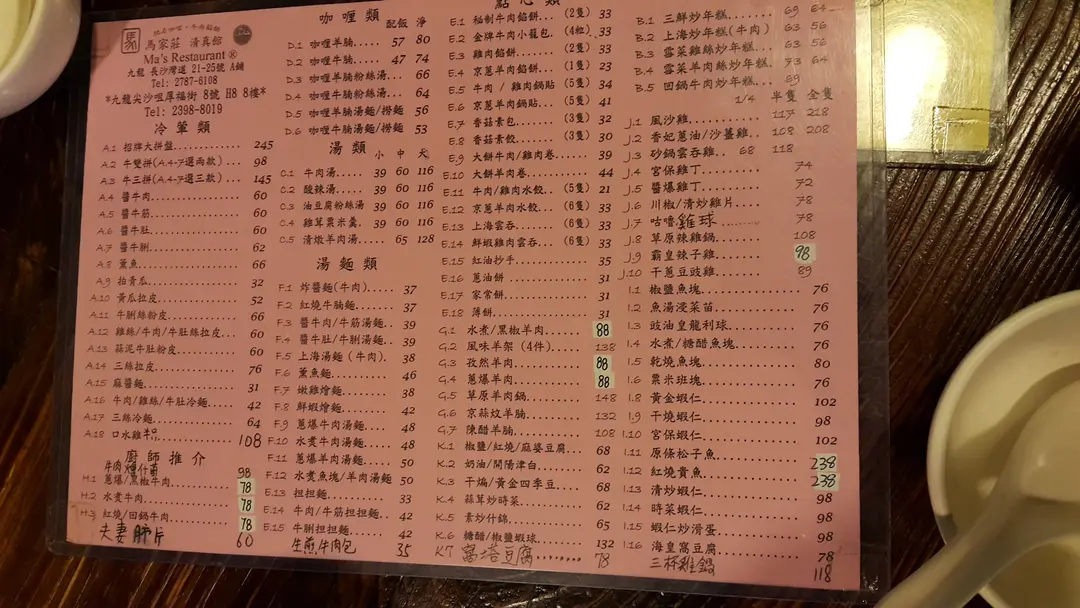 馬家莊 清真館
Ma's Restaurant®
九龍 長沙灣道 21-25號 A舖
Tel: 2787-6108
*九龍尖沙咀厚福街 8號 H8 8樓*
Tel: 2398-8019
冷葷類
A.1 招牌大拼盤 245
A.2 牛雙拼(A.4-7選兩款) 98
A.3 牛三拼(A.4-7選三款) 145
A.4 醬牛肉 60
A.5 醬牛筋 60
A.6 醬牛肚 60
A.7 醬牛脷 62
A.8 薰魚 66
A.9 拍青瓜 32
A.10 黃瓜拉皮 52
A.11 牛脷絲粉皮 66
A.12 雞絲/牛肉/牛肚絲拉皮 60
A.13 蒜泥牛肚粉皮 60
A.14 三絲拉皮 76
A.15 麻醬麵 31
A.16 牛肉/雞絲/牛肚冷麵 42
A.17 三絲冷麵 64
A.18 口水雞 108
廚師推介
98
H.1 蔥爆/黑椒牛肉 78
H.2 水煮牛肉 78
H.3 紅燒/回鍋牛肉 78
夫妻肺片 60
咖喱類 配飯 淨
D.1 咖喱羊腩 57 80
D.2 咖喱牛腩 47 74
D.3 咖喱羊腩粉絲湯 66
D.4 咖喱牛腩粉絲湯 64
D.5 咖喱羊腩湯麵/撈麵 56
D.6 咖喱牛腩湯麵/撈麵 53
湯類 小 中 大
C.1 牛肉湯 39 60 116
C.2 酸辣湯 39 60 116
C.3 油豆腐粉絲湯 39 60 116
C.4 雞茸粟米羹 39 60 116
C.5 清燉羊肉湯 65 128
湯麵類
F.1 炸醬麵(牛肉) 37
F.2 紅燒牛腩麵 37
F.3 醬牛肉/牛筋湯麵 39
F.4 醬牛肚/牛脷湯麵 39
F.5 上海湯麵(牛肉) 38
F.6 薰魚麵 46
F.7 嫩雞燴麵 38
F.8 鮮蝦燴麵 42
F.9 蔥爆牛肉湯麵 48
F.10 水煮牛肉湯麵 48
F.11 蔥爆羊肉湯麵 50
F.12 水煮魚塊/羊肉湯麵 50
E.13 担担麵 33
E.14 牛肉/牛筋担担麵 42
E.15 牛脷担担麵 42
生煎牛肉包 35
點心類
E.1 秘制牛肉餡餅 (2隻) 33
E.2 金牌牛肉小籠包 (4粒) 33
E.3 雞肉餡餅 (2隻) 33
E.4 京蔥羊肉餡餅 (1隻) 23
E.5 牛肉/雞肉鍋貼 (5隻) 34
E.6 京蔥羊肉鍋貼 (5隻) 41
E.7 香菇素包 (3隻) 32
E.8 香菇素餃 (3隻) 30
E.9 大餅牛肉/雞肉卷 39
E.10 大餅羊肉卷 44
E.11 牛肉/雞肉水餃 (5隻) 21
E.12 京蔥羊肉水餃 (6隻) 33
E.13 上海雲吞 (6隻) 33
E.14 鮮蝦雞肉雲吞 (6隻) 33
E.15 紅油抄手 35
E.16 蔥油餅 31
E.17 家常餅 31
E.18 薄餅 31
G.1 水煮/黑椒羊肉 88
G.2 風味羊架(4件) 138
G.3 孜然羊肉 88
G.4 蔥爆羊肉 88
G.5 草原羊肉鍋 148
G.6 京蒜炆羊腩 132
G.7 陳醋羊腩 108
K.1 椒鹽/紅燒/麻婆豆腐 68
K.2 奶油/開陽津白 62
K.3 干煸/黃金四季豆 68
K.4 蒜茸炒時菜 62
K.5 素炒什錦 65
K.6 糖醋/椒鹽蝦球 132
K7 窩塔豆腐 78
B.1 三鮮炒年糕 69 84
B.2 上海炒年糕(牛肉) 63 56
B.3 雪菜雞絲炒年糕 63 56
B.4 雪菜羊肉絲炒年糕 73 64
B.5 回鍋牛肉炒年糕 69
1/4 半隻 全隻
J.1 風沙雞 117 218
J.2 香妃蔥油/沙薑雞 108 208
J.3 砂鍋雲吞雞 68 118
J.4 宮保雞丁 74
J.5 醬爆雞丁 72
J.6 川椒/清炒雞片 78
J.7 咕嚕雞球 78
J.8 草原辣雞鍋 108
J.9 霸皇辣子雞 98
J.10 干蔥豆豉雞 89
I.1 椒鹽魚塊 76
I.2 魚湯浸菜苗 76
I.3 豉油皇龍利球 76
I.4 水煮/糖醋魚塊 76
I.5 乾燒魚塊 80
I.6 粟米班塊 76
I.8 黃金蝦仁 102
I.9 干燒蝦仁 98
I.10 宮保蝦仁 102
I.11 原條松子魚 238
I.12 紅燒貴魚 238
I.13 清炒蝦仁 98
I.14 時菜蝦仁 98
I.15 蝦仁炒滑蛋 98
I.16 海皇窩豆腐 78
三杯雞鍋 118